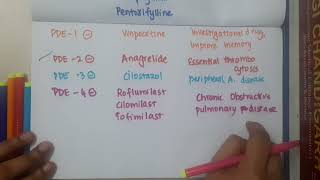 Pentoxifylline
PDE-1 ⊖ Vinpocetine Investigational drug,
improve memory
PDE-2 ⊖ Anagrelide Essential thrombo
cytosis
PDE-3 ⊖ Cilostazol peripheral A. disease
PDE-4 ⊖ Roflumilast Chronic Obstructive
Cilomilast pulmonary disease
Tofimilast